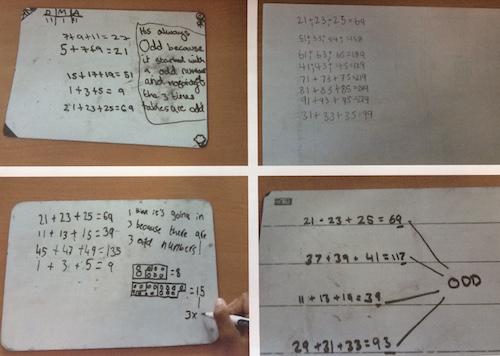 D M A
11 1 1
7+9+11=27
5+7+9=21
15+17+19=51
1+3+5=9
21+23+25=69
Its always
Odd because
it started with
a odd number
and
the 3 times
tables are odd
21+23+25=69
61+63+65=189
41+43+45=129
71+73+75=219
81+83+85=249
31+33+35=99
21+23+25=69
11+13+15=39
45+47+49=135
1+3+5=9
I think it's going in
3 because there are
3 odd numbers!
8 =8
=15
3x
21+23+25=69
37+39+41=117
11+13+15=39
29+31+33=93
ODD